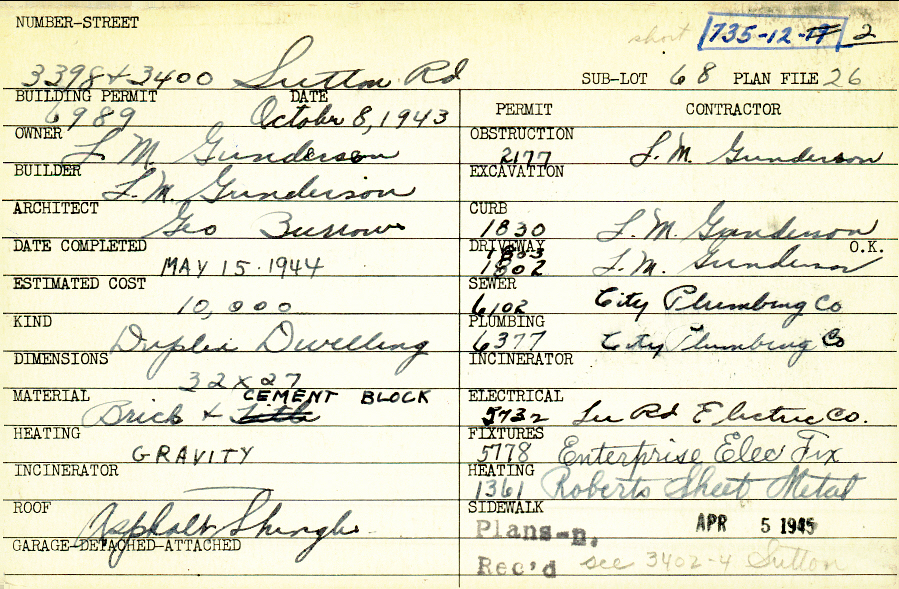 NUMBER-STREET
short 735-12-17 2
3398 + 3400 Sutton Rd SUB-LOT 68 PLAN FILE 26
BUILDING PERMIT DATE
6989 October 8, 1943
OWNER
L. M. Gunderson
BUILDER
L. M. Gunderson
ARCHITECT
Geo Burrows
DATE COMPLETED
MAY 15·1944
ESTIMATED COST
10,000
KIND
Duplex Dwelling
DIMENSIONS
32 x 27
MATERIAL CEMENT BLOCK
Brick +
HEATING
GRAVITY
INCINERATOR
ROOF
Asphalt Shingle
GARAGE-DETACHED-ATTACHED
PERMIT CONTRACTOR
OBSTRUCTION
2177 L. M. Gunderson
EXCAVATION
CURB
1830 L. M. Gunderson
DRIVEWAY O.K.
1803
1802 L. M. Gunderson
SEWER
6102 City Plumbing Co
PLUMBING
6377 City Plumbing Co
INCINERATOR
ELECTRICAL
5732 Lee Rd Electric Co.
FIXTURES
5778 Enterprise Elec Fix
HEATING
1361 Roberts Sheet Metal
SIDEWALK
Plans-n. APR 5 1945
Rec'd see 3402-4 Sutton